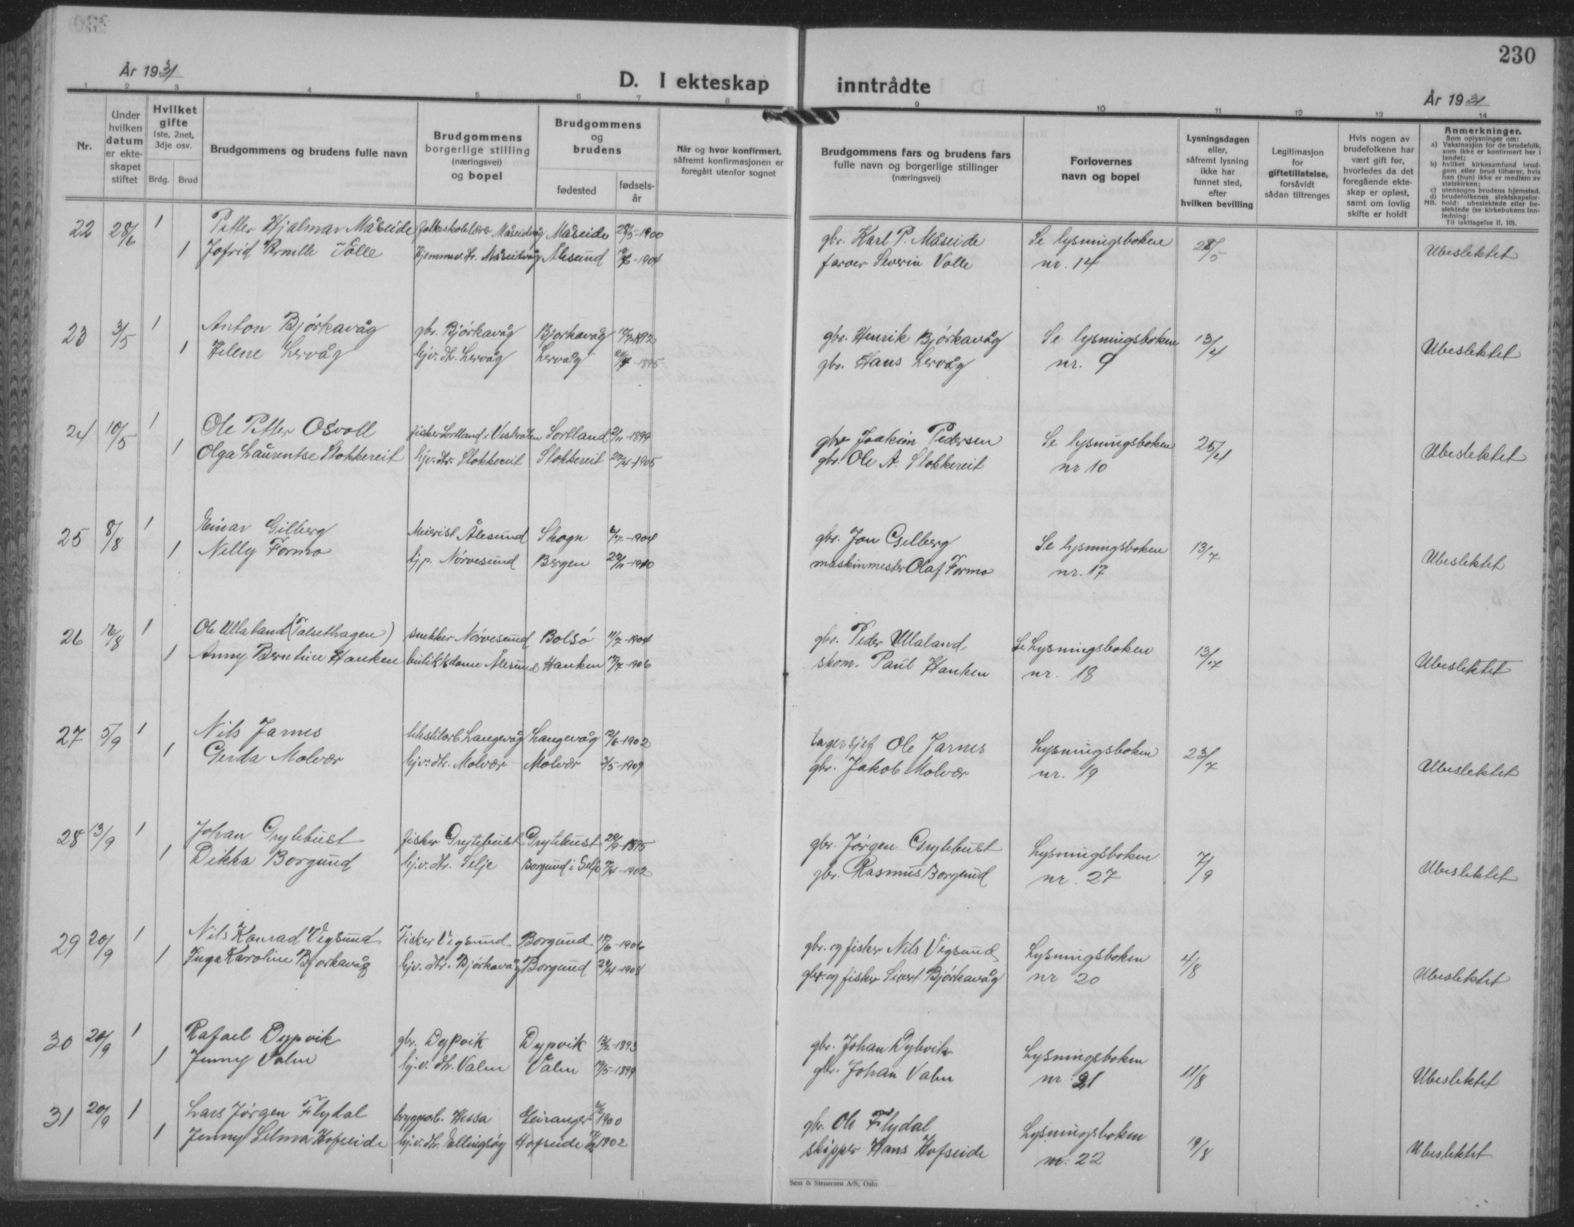 230
År 1931
D. I ekteskap inntrådte
År 1931
1 2 3 4 5 6 7 8 9 10 11 12 13 14
Nr.
Under hvilken datum er ekteskapet stiftet
Hvilket gifte 1ste, 2net, 3dje osv.
Brdg. Brud
Brudgommens og brudens fulle navn
Brudgommens borgerlige stilling (næringsvei) og bopel
Brudgommens og brudens
fødested
fødselsår
Når og hvor konfirmert, såfremt konfirmasjonen er foregått utenfor sognet
Brudgommens fars og brudens fars fulle navn og borgerlige stillinger (næringsvei)
Forlovernes navn og bopel
Lysningsdagen eller, såfremt lysning ikke har funnet sted, efter hvilken bevilling
Legitimasjon for giftetillatelse, forsåvidt sådan tiltrenges
Hvis nogen av brudefolkene har vært gift før, hvorledes da det foregående ekteskap er opløst, samt om lovlig skifte er holdt
Anmerkninger.
Som oplysninger om:
a) Vaksinasjon for de brudefolk, som ikke er konfirmert her i landet;
b) hvilket kirkesamfund brudgom eller brud tilhører, hvis han (hun) ikke er medlem av statskirken;
c) utensogns brudens hjemsted.
d) brudefolkenes slektskapsforhold: ubeslektede eller beslektede (se kirkebokens innledning:
NB. Til iakttagelse II, 10).
22 1 Petter Hjalmar Måseide Måseide 1900 gbr. Karl P. Måseide Se lysningsboken 28/5 Ubeslektet
1 Jofrid Volle Ålesund 1904 Severin Volle nr. 14
23 3/5 1 Anton Bjørkavåg gbr. Bjørkavåg Bjørkavåg gbr. Henrik Bjørkavåg Se lysningsboken 13/4 Ubeslektet
1 Jelene Lervåg hjv. dtr. Lervåg Lervåg 1895 gbr. Hans Lervåg nr. 9
24 10/5 1 Ole Petter Osvoll fisker Sortland i Vesterålen Sortland 1899 gbr Joakim Pedersen Se lysningsboken 25/4 Ubeslektet
1 Olga Laurentse Stokkereit hjv. dtr. Stokkereit Stokkereit 1905 gbr. Ole A. Stokkereit nr 10
25 8/8 1 Einar Gilberg Meierist Ålesund Skogn 1904 gbr. Jon Gilberg Se lysningsboken 13/7 Ubeslektet
1 Nelly Formo Nørvesund Bergen 1910 maskinmester Olaf Formo nr. 17
26 1 Ole Ullaland (Talsethagen) snekker Nørvesund Bolsø 1904 gbr. Peder Ullaland Se Lysningsboken 13/7 Ubeslektet
1 Anny Berntine Hanken butikkdame Ålesund Hanken 1906 skom. Paul Hanken nr. 18
27 5/9 1 Nils Jarnes Langevåg Langevåg 1902 lagersjef Ole Jarnes Lysningsboken 23/7 Ubeslektet
1 Gerda Molvær hjv. dtr. Molvær Molvær 1909 gbr. Jakob Molvær nr. 19
28 13/9 1 Johan Grytebust fisker Grytebust Grytebust 1895 gbr. Jørgen Grytebust Lysningsboken 7/9 Ubeslektet
1 Dikka Borgund hjv. dtr. Selje Borgund i Selje 1902 gbr. Rasmus Borgund nr. 27
29 20/9 1 Nils Konrad Vegsund Fisker Vegsund Borgund 1906 gbr. og fisker Nils Vegsund Lysningsboken 4/8 Ubeslektet
1 Inga Karoline Bjørkavåg hjv. dtr. Bjørkavåg Borgund gbr. og fisker Sivert Bjørkavåg nr 20
30 20/9 1 Rafael Dypvik gbr. Dypvik Dypvik 1893 gbr. Johan Dybvik Lysningsboken 11/8 Ubeslektet
1 Jenny Valen hjv. dtr. Valen Valen 1899 gbr. Johan Valen nr. 21
31 20/9 1 Lars Jørgen Flydal Hessa Geiranger 1900 gbr. Ole Flydal Lysningsboken 19/8 Ubeslektet
1 Jenny Selma Hofseide hjv. dtr. Ellingsøy Hofseide 1902 skipper Hans Hofseide nr. 22
Sem & Stenersen A/S, Oslo